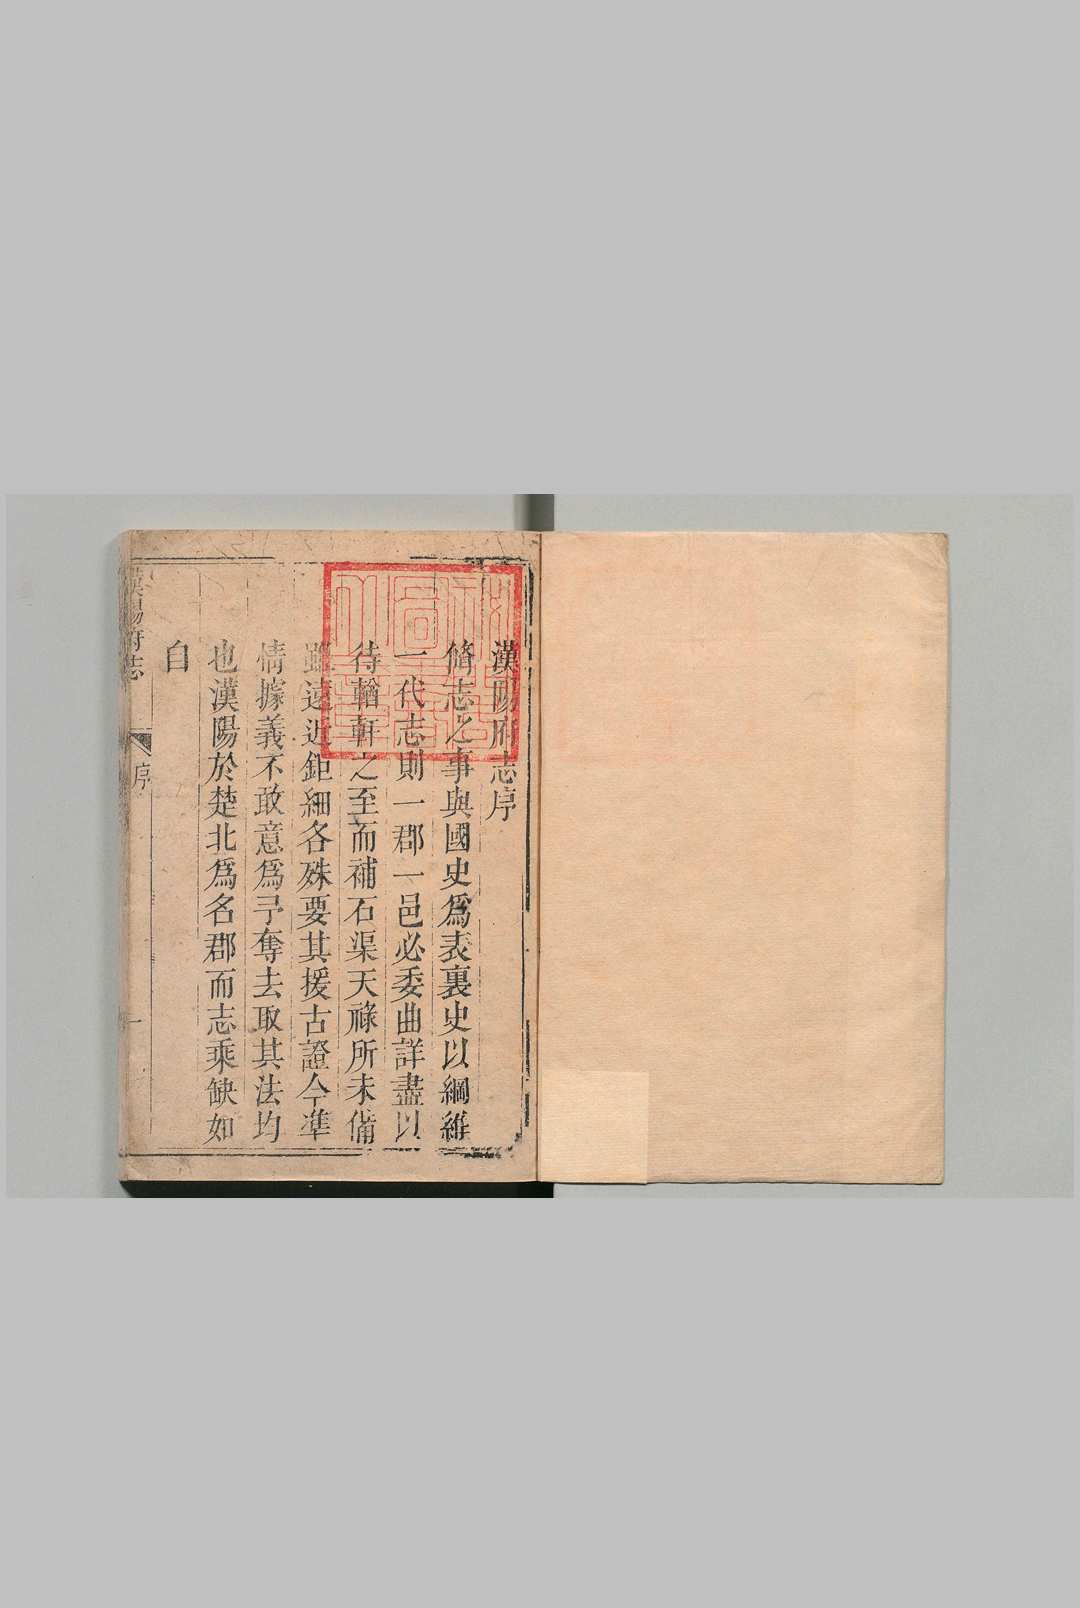 漢陽府志序
脩志之事與國史爲表裏史以綱維
一代志則一郡一邑必委曲詳盡以
待輶軒之至而補石渠天祿所未備
雖遠近鉅細各殊要其援古證今準
情據義不敢意爲予奪去取其法均
也漢陽於楚北爲名郡而志乘缺如
自
漢陽府志
序
一